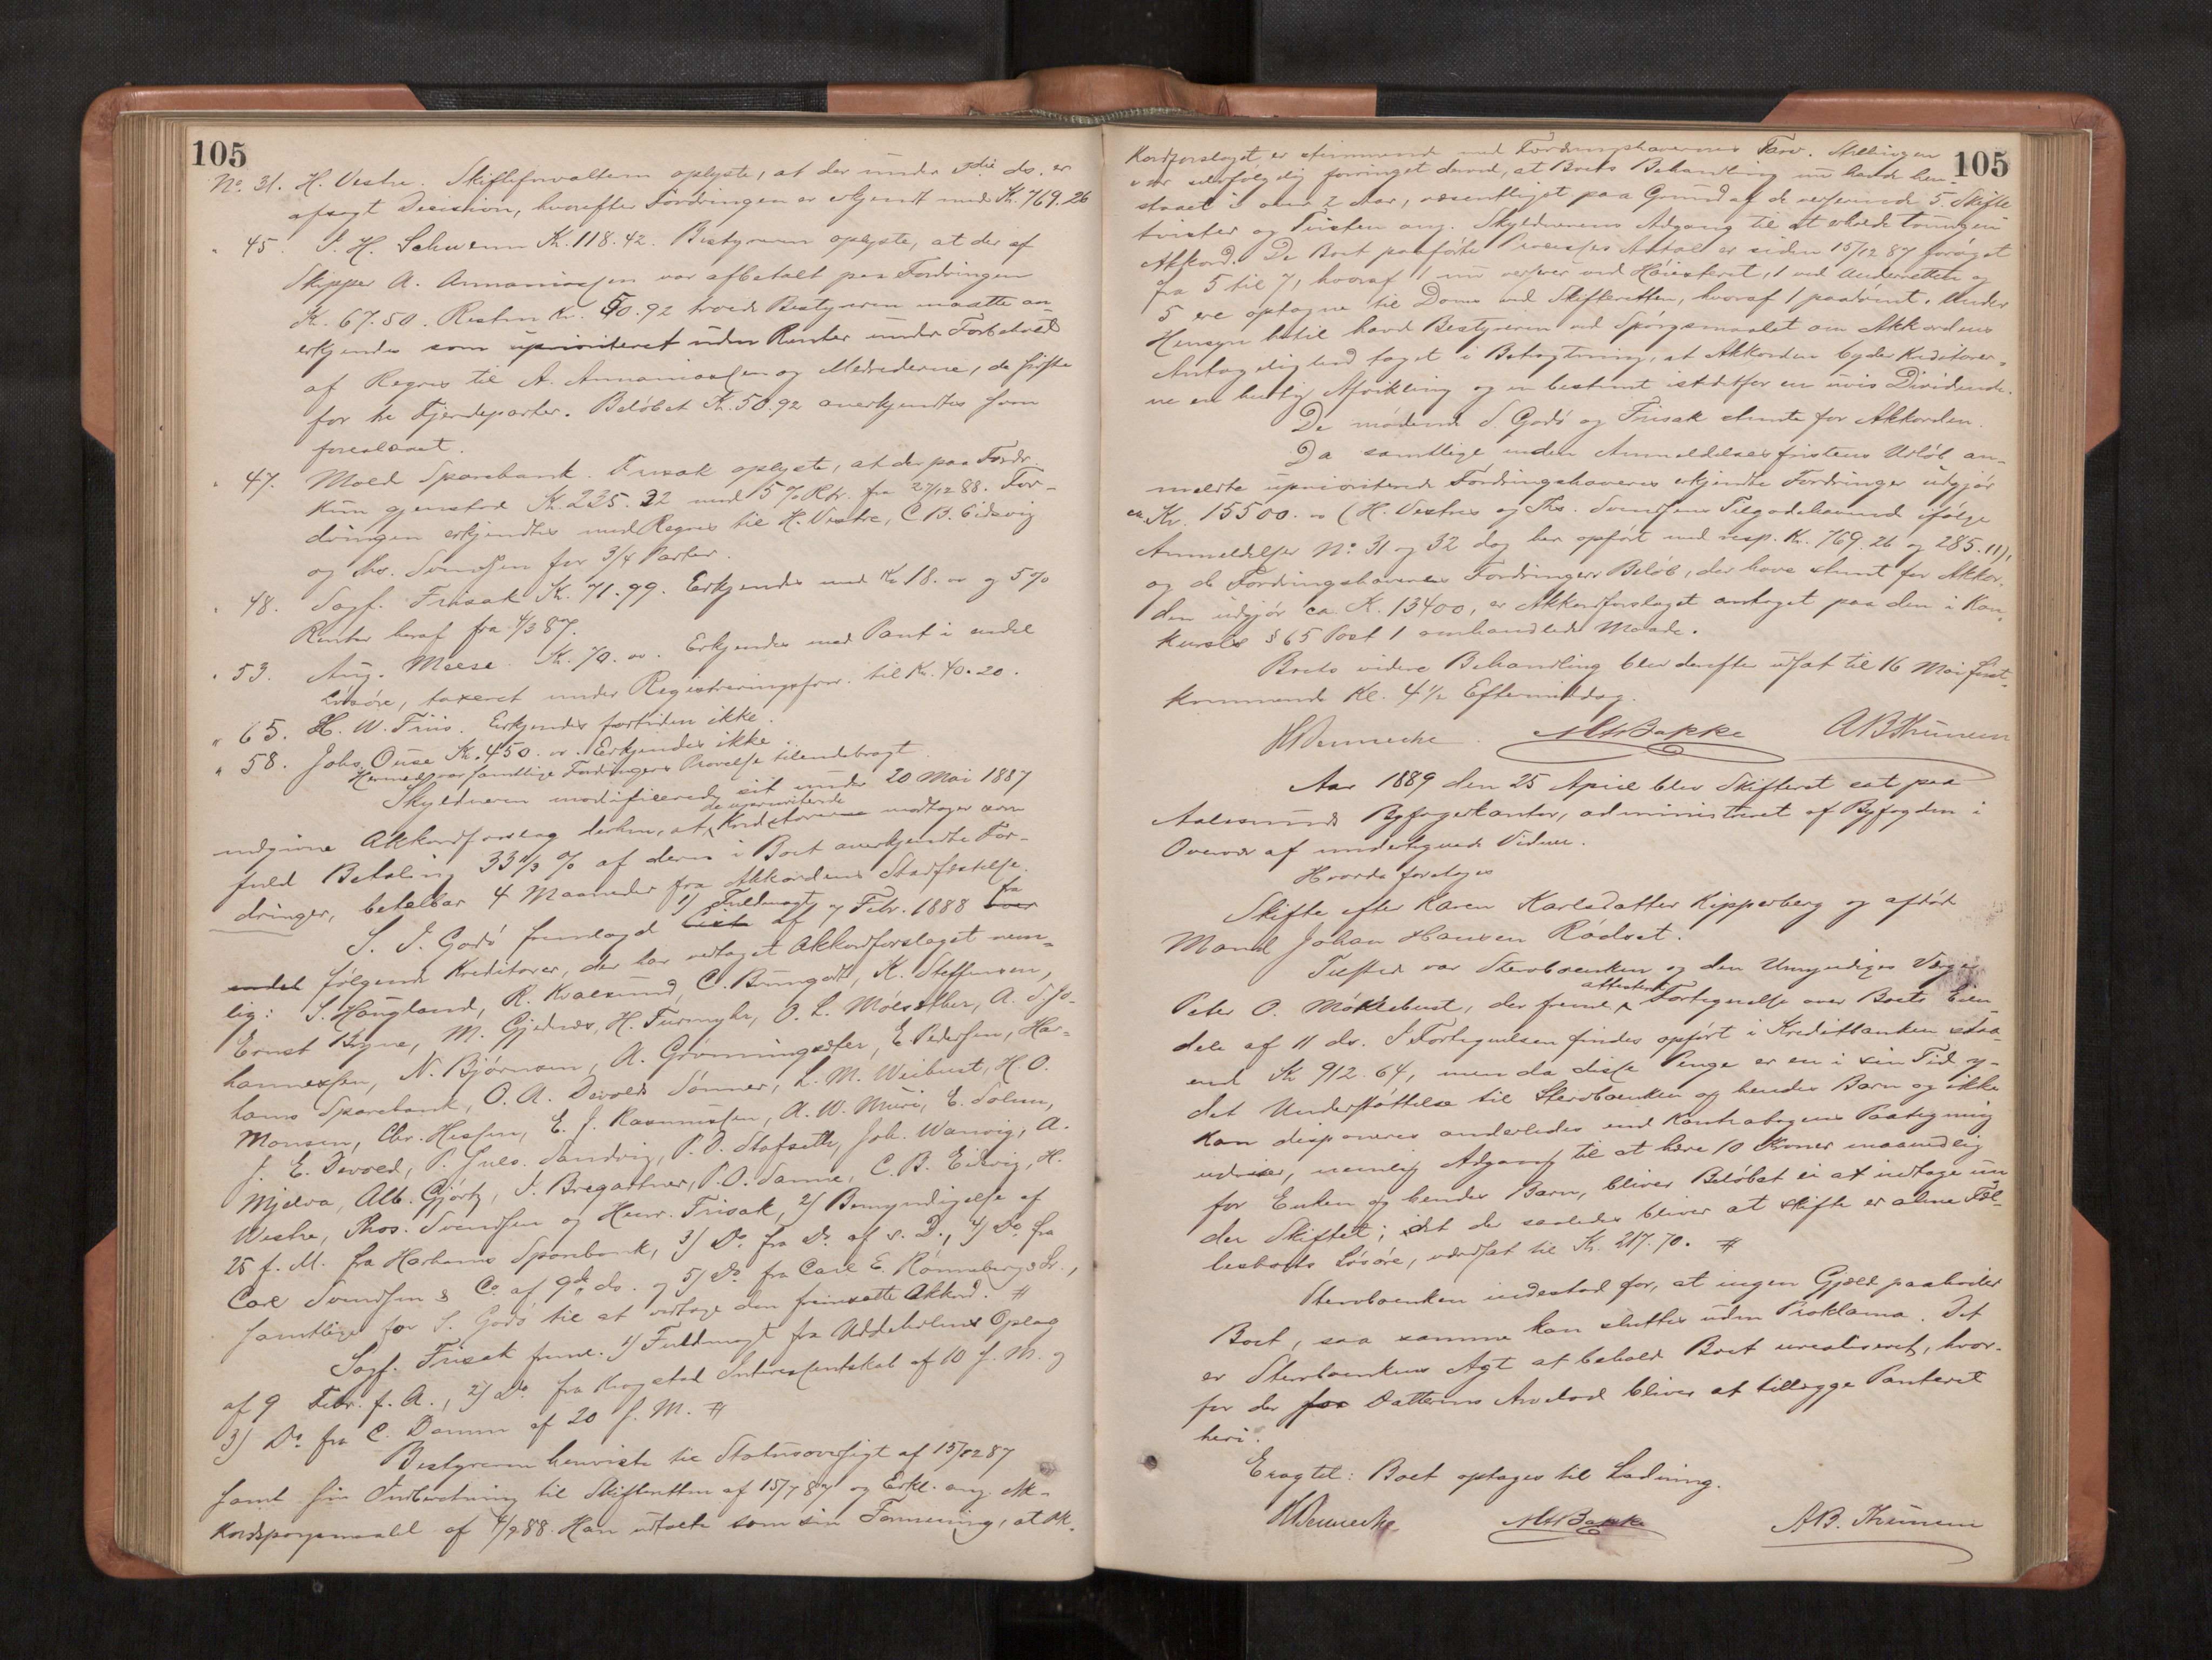 105
No. 31. H. Vestre. Skifteforvalteren oplyste, at der under 3die ds. er
afsagt Decision, hvorefter Fordringen er erkjendt med Kr. 769.26
" 45. J. H. Schwenn Kr. 118.42. Bestyreren oplyste, at der af
Skipper A. Annaniassen var afbetalt paa Fordringen
Kr. 67.50. Resten Kr. 50.92 troede Bestyreren maatte an
erkjendes som uprioriteret uden Renter under Forbehold
af Regres til A. Annaniassen og Medrederne, de sidste
for tre Fjerdeparter. Beløbet Kr. 50.92 anerkjendtes som
foreslaaet.
" 47. Molde Sparebank. Frisak oplyste, at der paa Fordr.
kun gjenstod Kr. 235.32 med 5% Rtr. fra 27/12 88. For-
dringen erkjendtes med Regres til H. Vestre, C. B. Eidsvig
og Ths. Svendsen for 3/4 Parter.
" 48. Sagf. Frisak Kr. 71.99. Erkjendes med Kr 18.00 og 5%
Renter heraf fra 4/3 87.
" 53. Aug. Meese. Kr. 70.00. Erkjendes med Pant i endel
Løsøre, taxeret under Registreringsforr. til Kr. 40.20.
" 65. H. W. Friis. Erkjendes fortiden ikke.
" 58. Johs. Ouse Kr. 450.00. Erkjendes ikke.
Hermed var samtlige Fordringers Prøvelse tilendebragt.
Skyldneren modificerede sit under 20 Mai 1887
indgivne Akkordforslag derhen, at de uprioriterede Kreditorerne modtager som
fuld Betaling 33 1/3 % af deres i Boet anerkjendte For-
dringer, betalbar 4 Maaneder fra Akkordens Stadfæstelse.
S. J. Godø fremlagde 1) Fuldmagt af 7 Febr. 1888 fra
følgende Kreditorer, der har vedtaget Akkordforslaget nem-
lig: S. Haugland, R. Kvalsund, C. Bungodt, K. Steffensen,
Ernst Bryne, M. Gjednæs, H. Furmyhr, O. L. Molsæther, A. Jo-
hannessen, N. Bjørnsen, A. Grønningsæter, E. Pedersen, Har-
hams Sparebank, O. A. Devolds Sønner, L. M. Weibust, H. O.
Monsen, Chr. Hessen, E. J. Rasmussen, A. W. Muri, E. Solem,
J. E. Devold, P. Juls. Sandvig, P. O. Stafseth, Joh. Wanvig, A.
Mjelva, Alb. Gjørtz, J. Bregartner, P. O. Sanne, C. B. Eidsvig, H.
Westre, Thos. Svendsen og Henr. Frisak, 2) Bemyndigelse af
25 f. M. fra Harhams Sparebank, 3) Do. fra Do. af s. D., 4) Do. fra
Carl Svendsen & Co. af 9de ds. og 5) Do. fra Carl E. Rønneberg & S.,
samtlige for S. Godø til at vedtage den fremsatte Akkord. #
Sagf. Frisak freml. 1) Fuldmagt fra Uddeholms Oplag
af 9 Febr. f. A., 2) Do. fra Krogstad Interessentskab af 10 f. M. og
3) Do. fra C. Damm af 20 f. M. #
Bestyreren henviste til Statusoversigt af 15/12 87
samt sin Indberetning til Skifteretten af 15/7 87 og Erkl. ang. Ak-
kordspørgsmaalet af 4/9 88. Han udtalte som sin Formening, at Ak-
105
kordforslaget er stemmende med Fordringshavernes Tarv. Stillingen
var selvfølgelig forringet derved, at Boets Behandling nu havde hen-
staaet i over 2 Aar, væsentligst paa Grund af de verserende 5 Skifte
tvister og Tvisten ang. Skyldnerens Adgang til at erholde tvungen
Akkord. De Boet paaførte Processers Antal er siden 15/12 87 forøget
fra 5 til 7, hvoraf 1 nu verserer ved Høiesteret, 1 ved Underretten og
5 ere optagne til Doms ved Skifteretten, hvoraf 1 paadømt. Under
Hensyn hertil havde Bestyreren ved Spørgsmaalet om Akkordens
Antagelighed taget i Betragtning, at Akkorden byder Kreditorer-
ne en hurtig Afvikling og en bestemt istedetfor en uvis Dividende.
De mødende S. Godø og Frisak stemte for Akkorden.
Da samtlige inden Anmeldelsesfristens Udløb an-
meldte uprioriterede Fordringshaveres erkjendte Fordringer udgjør
ca. Kr. 15500.00 (H. Vestres og Ths. Svendsens Tilgodehavende ifølge
Anmeldelser No. 31 og 32 dog her opført med resp. Kr. 769.26 og 285.11),
og de Fordringshaveres Fordringers Beløb, der have stemt for Akkor-
den udgjør ca. Kr. 13400, er Akkordforslaget antaget paa den i Kon-
kursls. § 65 Post 1 omhandlede Maade.
Boets videre Behandling blev derefter udsat til 16 Mai først-
kommende Kl. 4 1/2 Eftermiddag.
A B Thunem
Aar 1889 den 25 April blev Skifteret sat paa
Aalesunds Byfogedkontor, administreret af Byfogden i
Overvær af undertegnede Vidner.
Hvorda foretoges
Skifte efter Karen Karlsdatter Kipperberg og afdøde
Mand Johan Hansen Rødset.
Tilstede var Stervboenken og den Umyndiges Værge
Peter O. Møklebust, der freml. attesteret Fortegnelse over Boets Eien-
dele af 11 ds. I Fortegnelsen findes opført i Kreditbanken staa-
ende Kr 912.64, men da disse Penge er en i sin Tid y-
det Understøttelse til Stervboenken og hendes Barn og ikke
kan disponeres anderledes end Kontrabogens Paategning
udviser, nemlig Adgang til at hæve 10 Kroner maanedlig
for Enken og hendes Barn, bliver Beløbet ei at indtage un
der Skiftet; idet der saaledes bliver at skifte er alene Fæl-
lesboets Løsøre, værdsat til Kr. 217.70. #
Stervboenken indestod for, at ingen Gjæld paahviler
Boet, saa samme kan sluttes uden Proklama. Det
er Stervboenkens Agt at beholde Boet urealiseret, hvor-
for der for Datterens Arvelod bliver at tillægge Panteret
heri.
Eragtet: Boet optages til Lodning.
A.B. Thunem